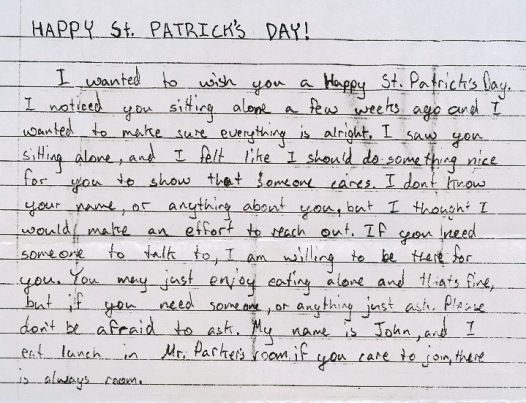 HAPPY St. PATRICK'S DAY!
I wanted to wish you a Happy St. Patrick's Day.
I noticed you sitting alone a few weeks ago and I
wanted to make sure everything is alright. I saw you
sitting alone, and I felt like I should do something nice
for you to show that someone cares. I dont know
your name, or anything about you, but I thought I
would make an effort to reach out. If you need
someone to talk to, I am willing to be there for
you. You may just enjoy eating alone and thats fine,
but if you need someone, or anything just ask. Please
don't be afraid to ask. My name is John, and I
eat lunch in Mr. Parker's room, if you care to join, there
is always room.